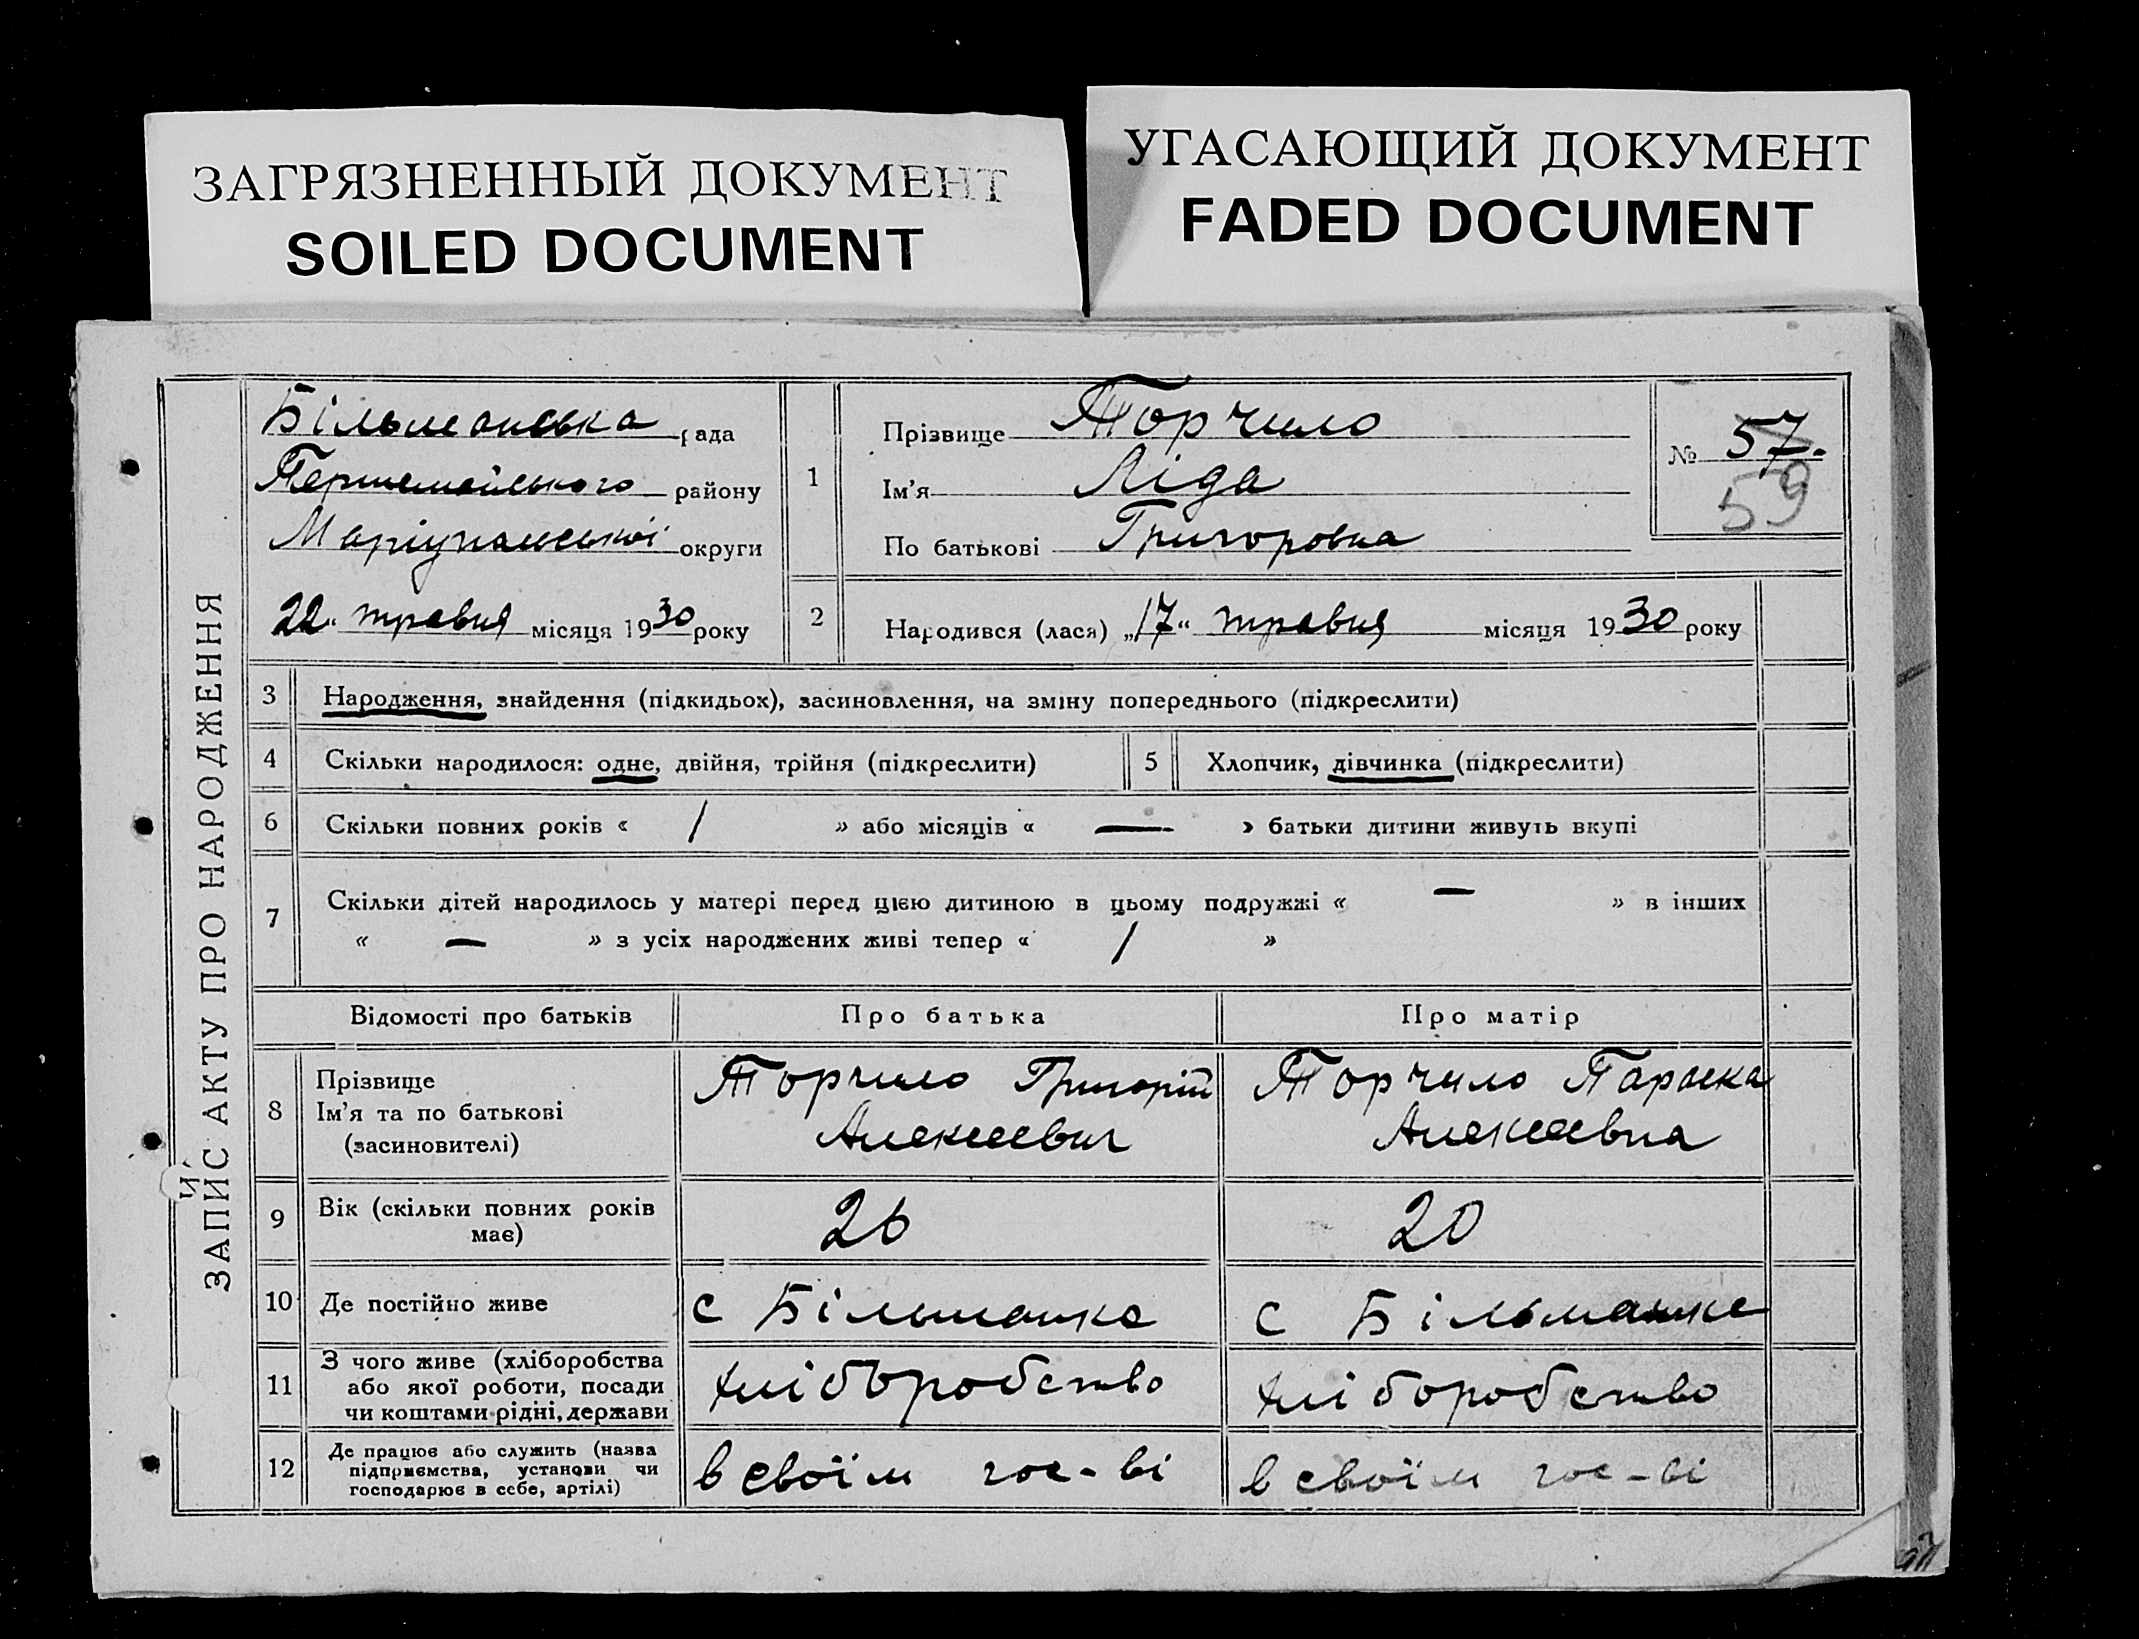 ЗАГРЯЗНЕННЫЙ ДОКУМЕНТ
SOILED DOCUMENT
УГАСАЮЩИЙ ДОКУМЕНТ
FADED DOCUMENT
ЗАПИС АКТУ ПРО НАРОДЖЕННЯ
Більманська рада
Першемайського району
Маріупольської округи
22" травня місяця 1930 року
1
Прізвище Торчило
Ім'я Ліда
По батькові Григоровна
№ 57.
59
2 Народився (лася) „17" травня місяця 1930 року
3 Народження, знайдення (підкидьох), засиновлення, на зміну попереднього (підкреслити)
4 Скільки народилося: одне, двійня, трійня (підкреслити) 5 Хлопчик, дівчинка (підкреслити)
6 Скільки повних років « 1 » або місяців « — » батьки дитини живуть вкупі
7 Скільки дітей народилось у матері перед цією дитиною в цьому подружжі « — » в інших
« — » з усіх народжених живі тепер « 1 »
Відомості про батьків Про батька Про матір
8
Прізвище
Ім'я та по батькові
(засиновителі)
Торчило Григорій
Алексеевич
Торчило Параска
Алексеевна
9
Вік (скільки повних років
має)
26
20
10 Де постійно живе
с Більманка
с Більманка
11
З чого живе (хліборобства
або якої роботи, посади
чи коштами рідні, держави
хліборобство
хліборобство
12
Де працює або служить (назва
підприємства, установи чи
господарює в себе, артілі)
в своїм гос-ві
в своїм гос-ві